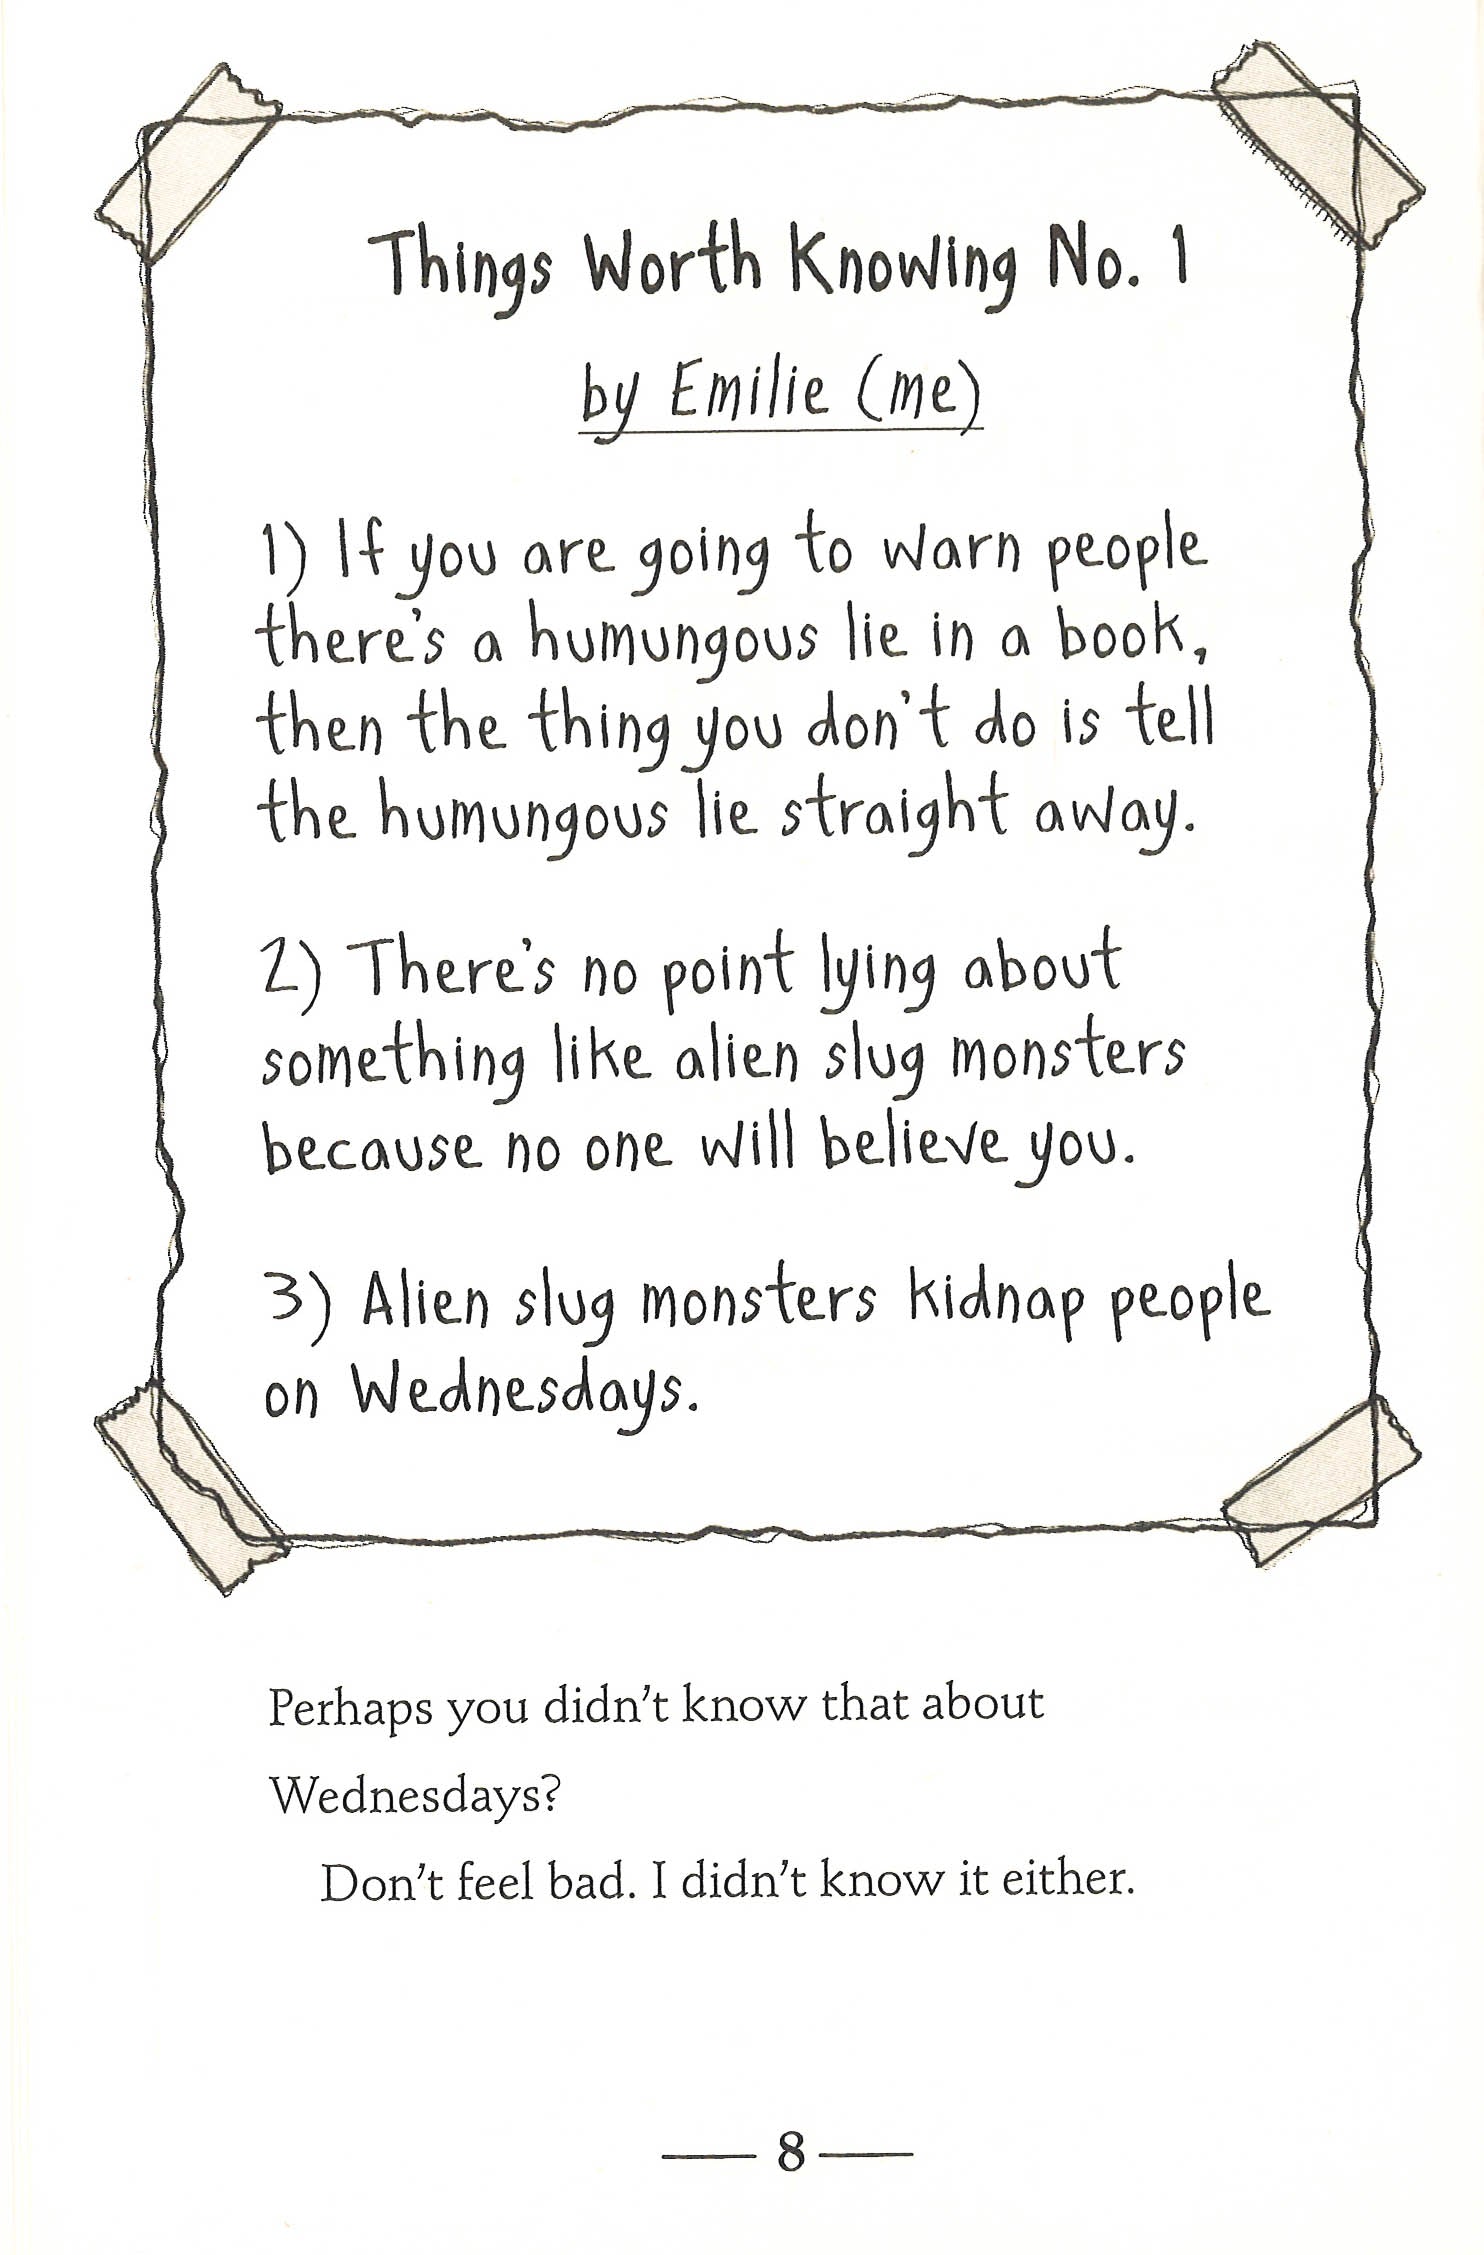 Things Worth Knowing No. 1
by Emilie (me)
1) If you are going to warn people
there's a humungous lie in a book,
then the thing you don't do is tell
the humungous lie straight away.
2) There's no point lying about
something like alien slug monsters
because no one will believe you.
3) Alien slug monsters kidnap people
on Wednesdays.
Perhaps you didn't know that about
Wednesdays?
Don't feel bad. I didn't know it either.
— 8 —